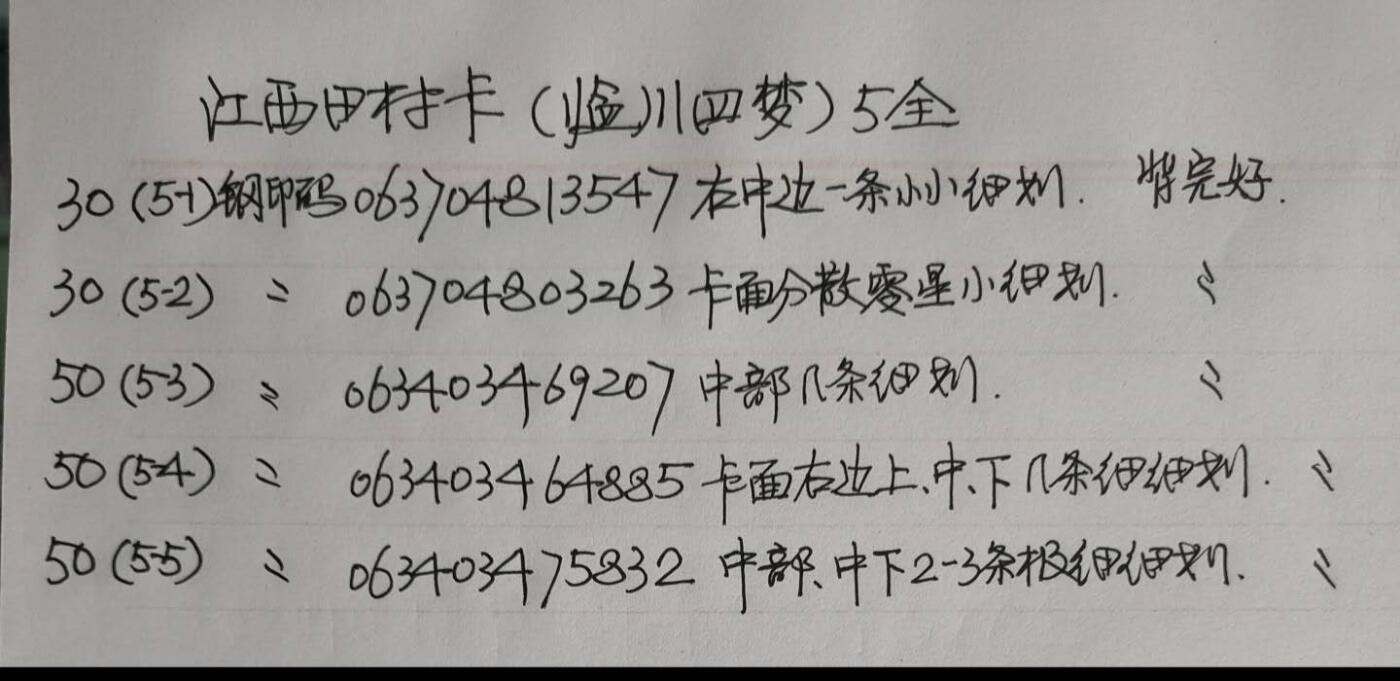 江西田村卡（临川四梦）5全
30（5-1）钢印码063704813547右中边一条小小细划. 背完好.
30（5-2） 〃 063704803263卡面分散零星小细划. 〃
50（5-3） 〃 063403469207中部几条细划. 〃
50（5-4） 〃 063403464885卡面右边上、中、下几条细细划. 〃
50（5-5） 〃 063403475832中部、中下2-3条极细细划. 〃